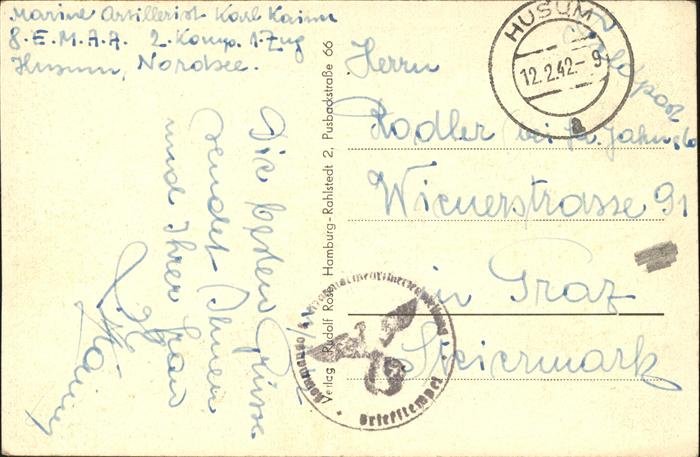 Marine Artillerist Karl Kainz
8. E. M. A. A. 2. Komp. 1. Zug
Husum, Nordsee.
Die besten Grüsse
sendet Ihnen
und Ihrer Frau
Verlag Rudolf Rosen Hamburg-Rahlstedt 2, Pusbackstraße 66
HUSUM
12.2.42-9
a
Feldpost
Herrn
Rodler bei Fr.
Wienerstrasse 91
in Graz
Steiermark
Briefstempel